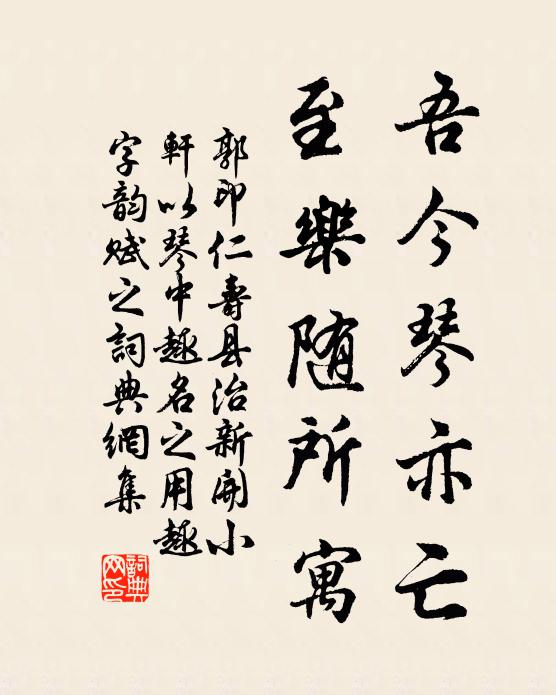 吾今琴亦亡
至樂随所寓
郭印仁壽县治新開小
軒以琴中趣名之用趣
字韵赋之詞典網集
詞典
网印